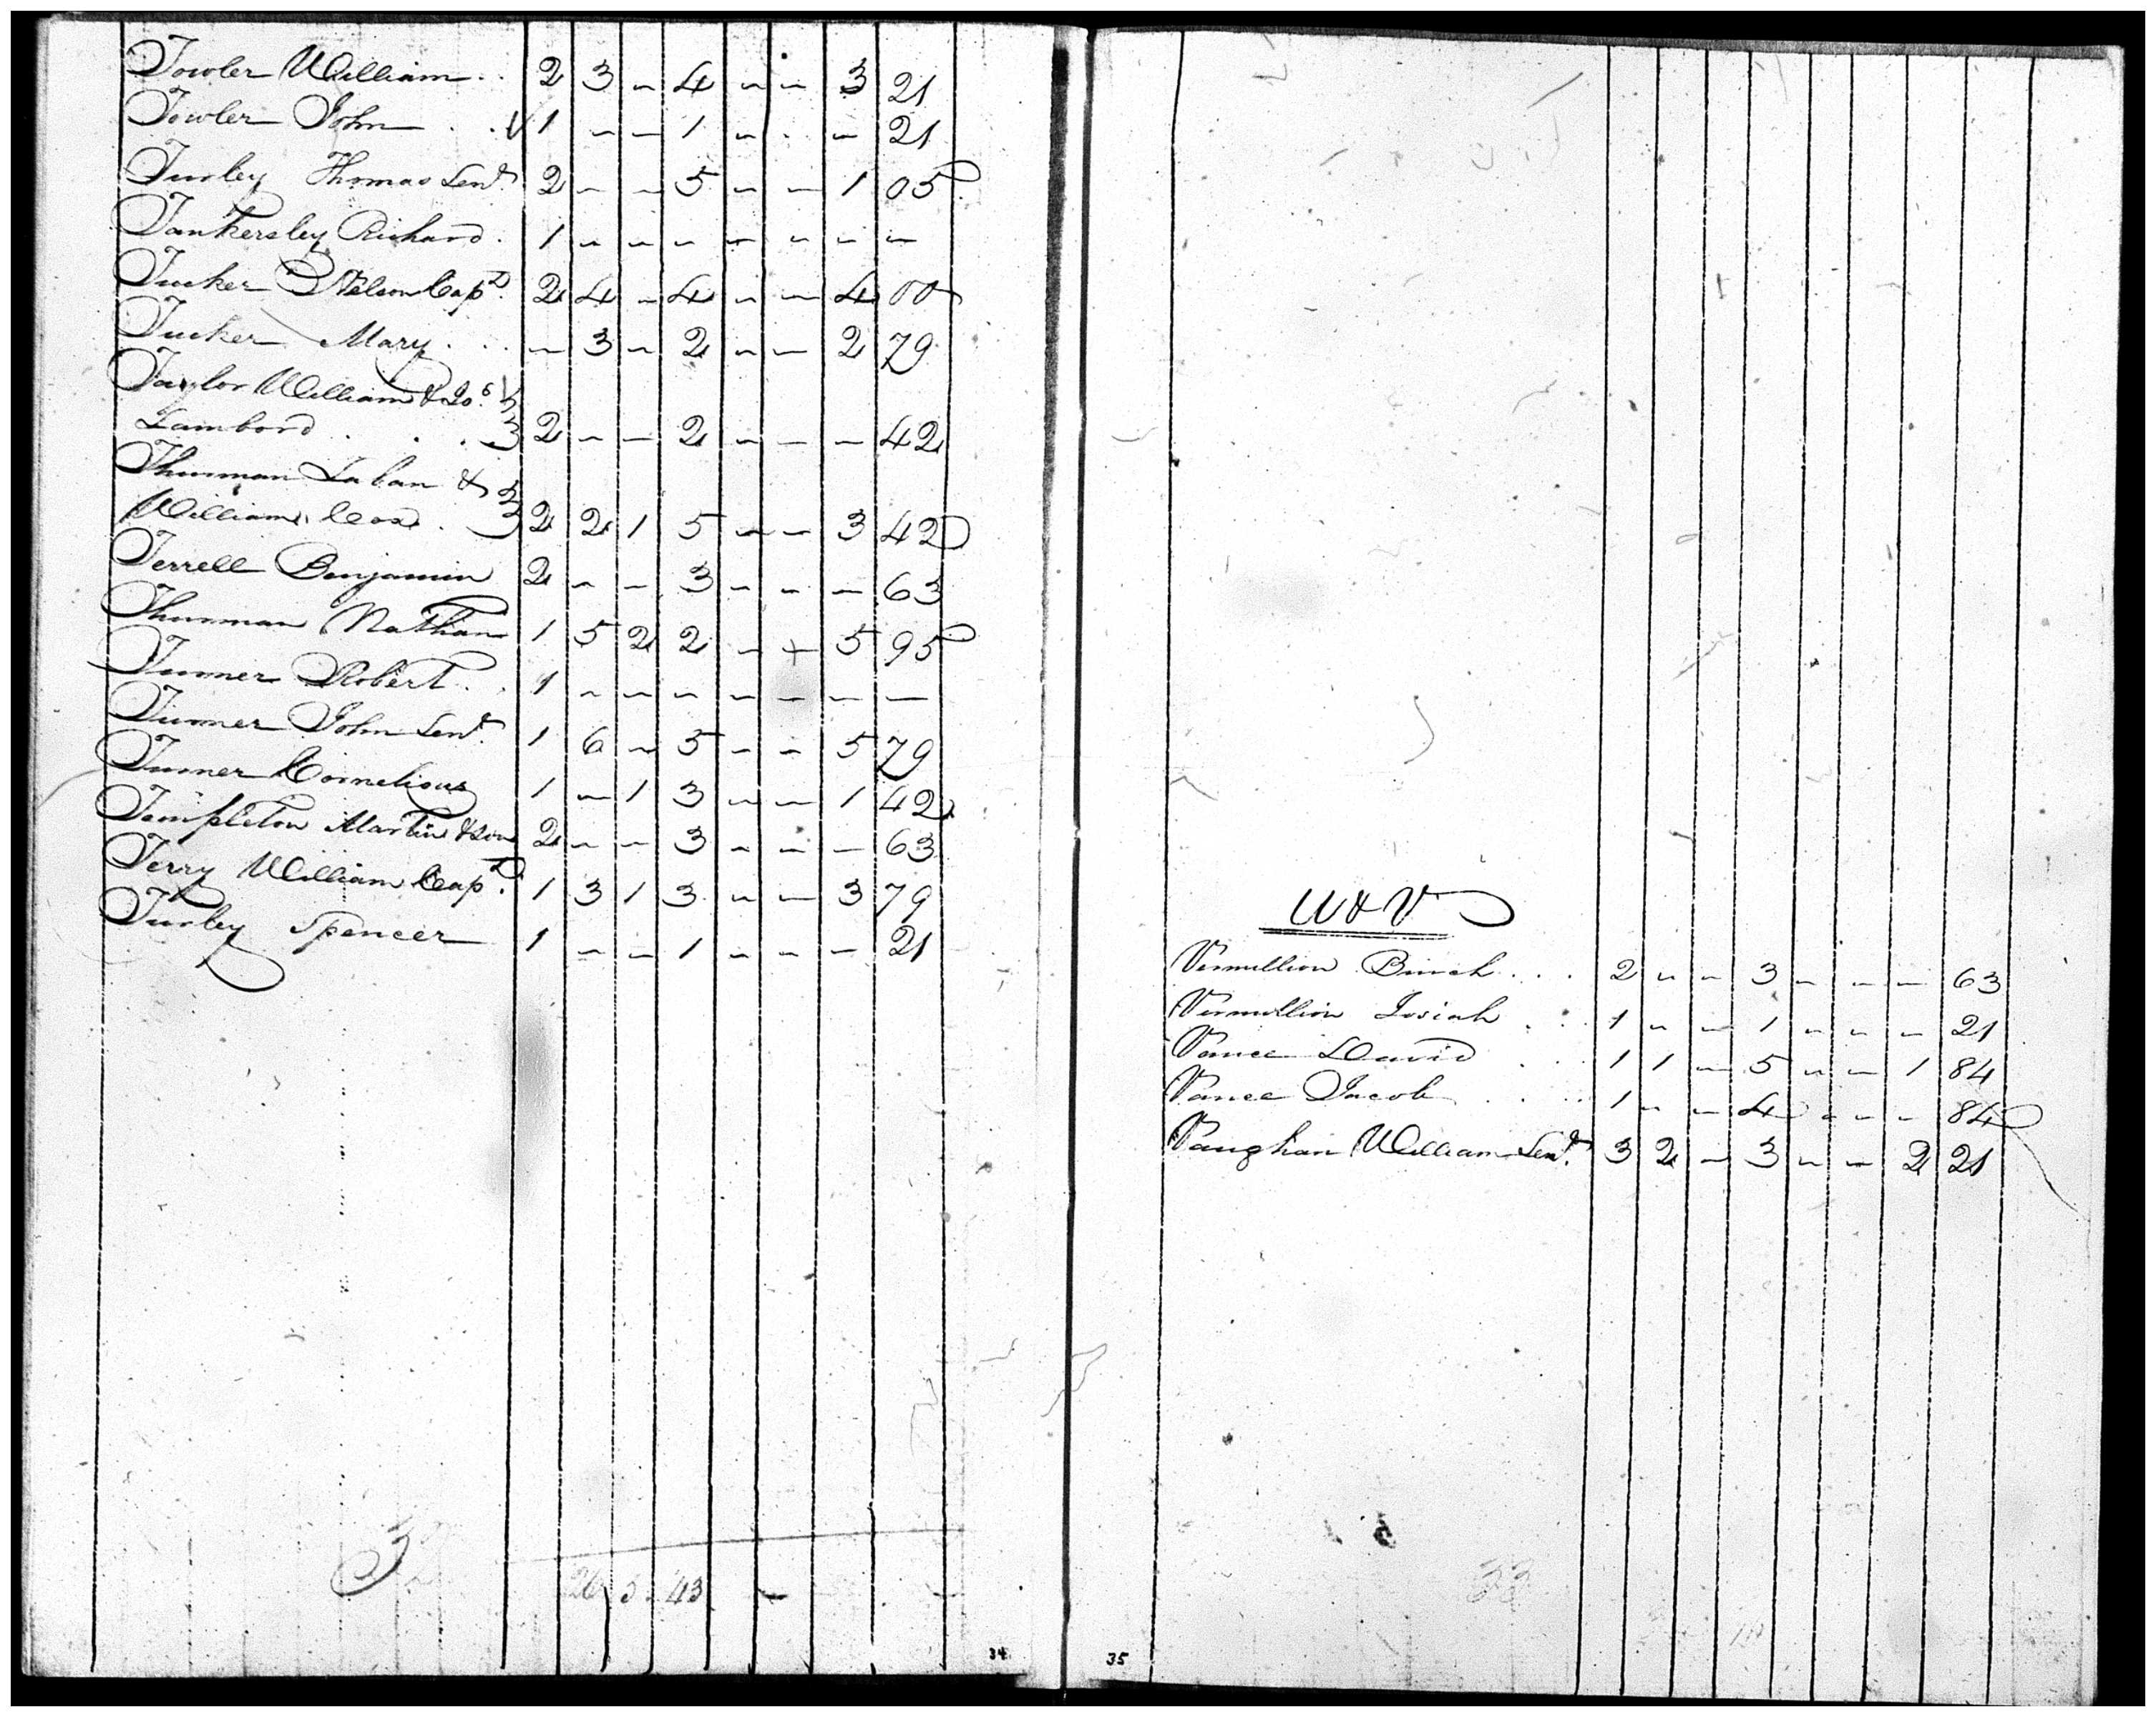 Towler William . . 2 3 - 4 - - 3 21
Towler John . . √ 1 - - 1 - - - 21
Turley Thomas Senr. 2 - - 5 - - 1 05
Tankersley Richard . 1 - - - - - - -
Tucker Nelson Capt. 2 4 - 4 - - 4 00
Tucker Mary . . . - 3 - 2 - - 2 79
Taylor William &
Lambord . . . 2 - - 2 - - - 42
Thurman Laban &
William Cox . 2 2 1 5 - - 3 42
Terrell Benjamin 2 - - 3 - - - 63
Thurman Nathan 1 5 2 2 - + 5 95
Turner Robert . . 1 - - - - - - -
Turner John Senr. 1 6 - 5 - - 5 79
Turner Cornelious 1 - 1 3 - - 1 42
Templeton Martin & son 2 - - 3 - - - 63
Terry William Capt. 1 3 1 3 - - 3 79
Turley Spencer 1 - - 1 - - - 21
26 5 43
34
U & V
Vermillion Birch . . . 2 - - 3 - - - 63
Vermillion Josiah . . . 1 - - 1 - - - 21
Vance David . . 1 1 - 5 - - 1 84
Vance Jacob . . . . 1 - - 4 - - - 84
Vaughan William Senr. 3 2 - 3 - - 2 21
33
35